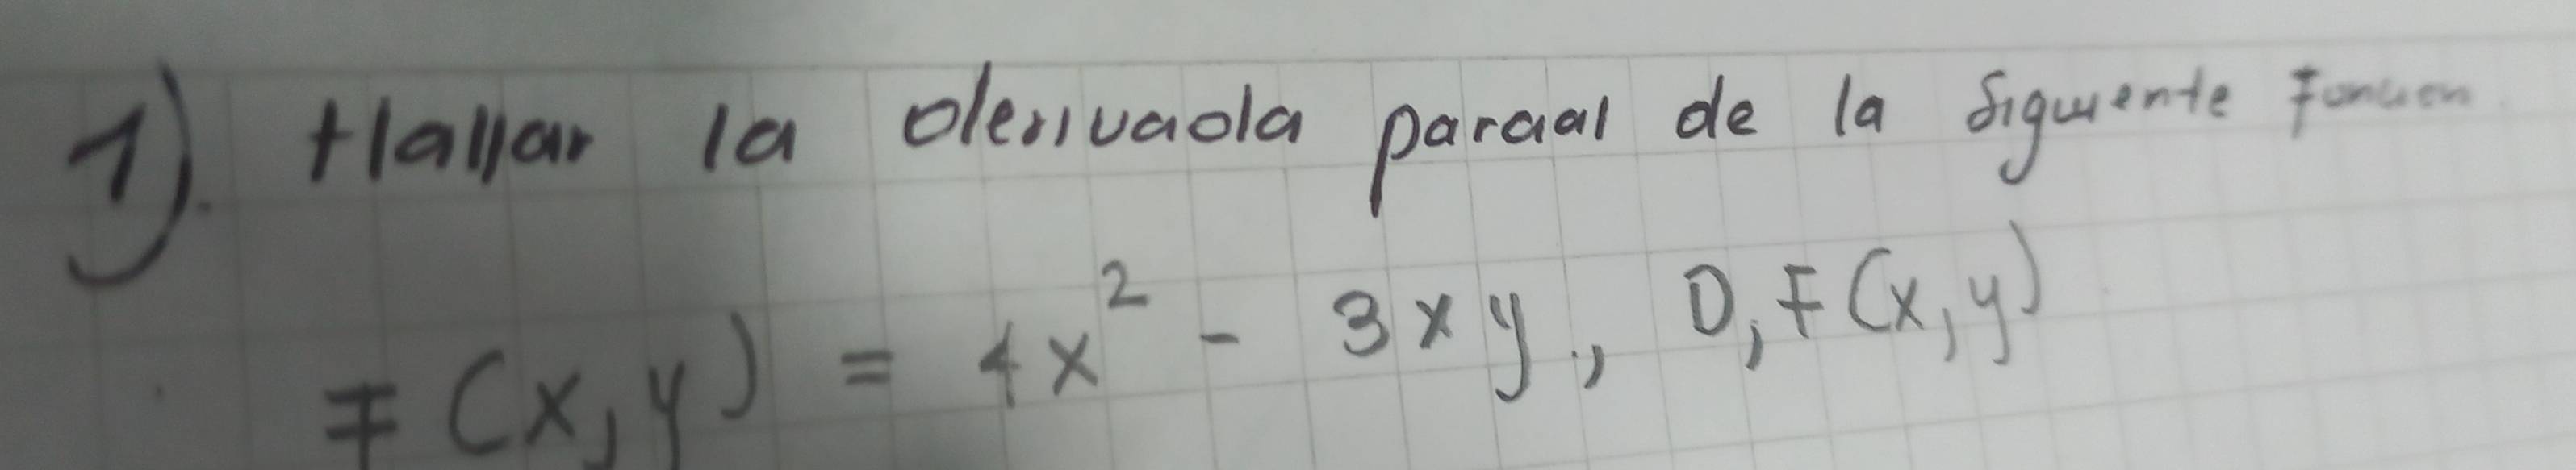 1). Hallar la derivada parcial de la siguiente función
F(x,y) = 4x² - 3xy., D, F(x,y)